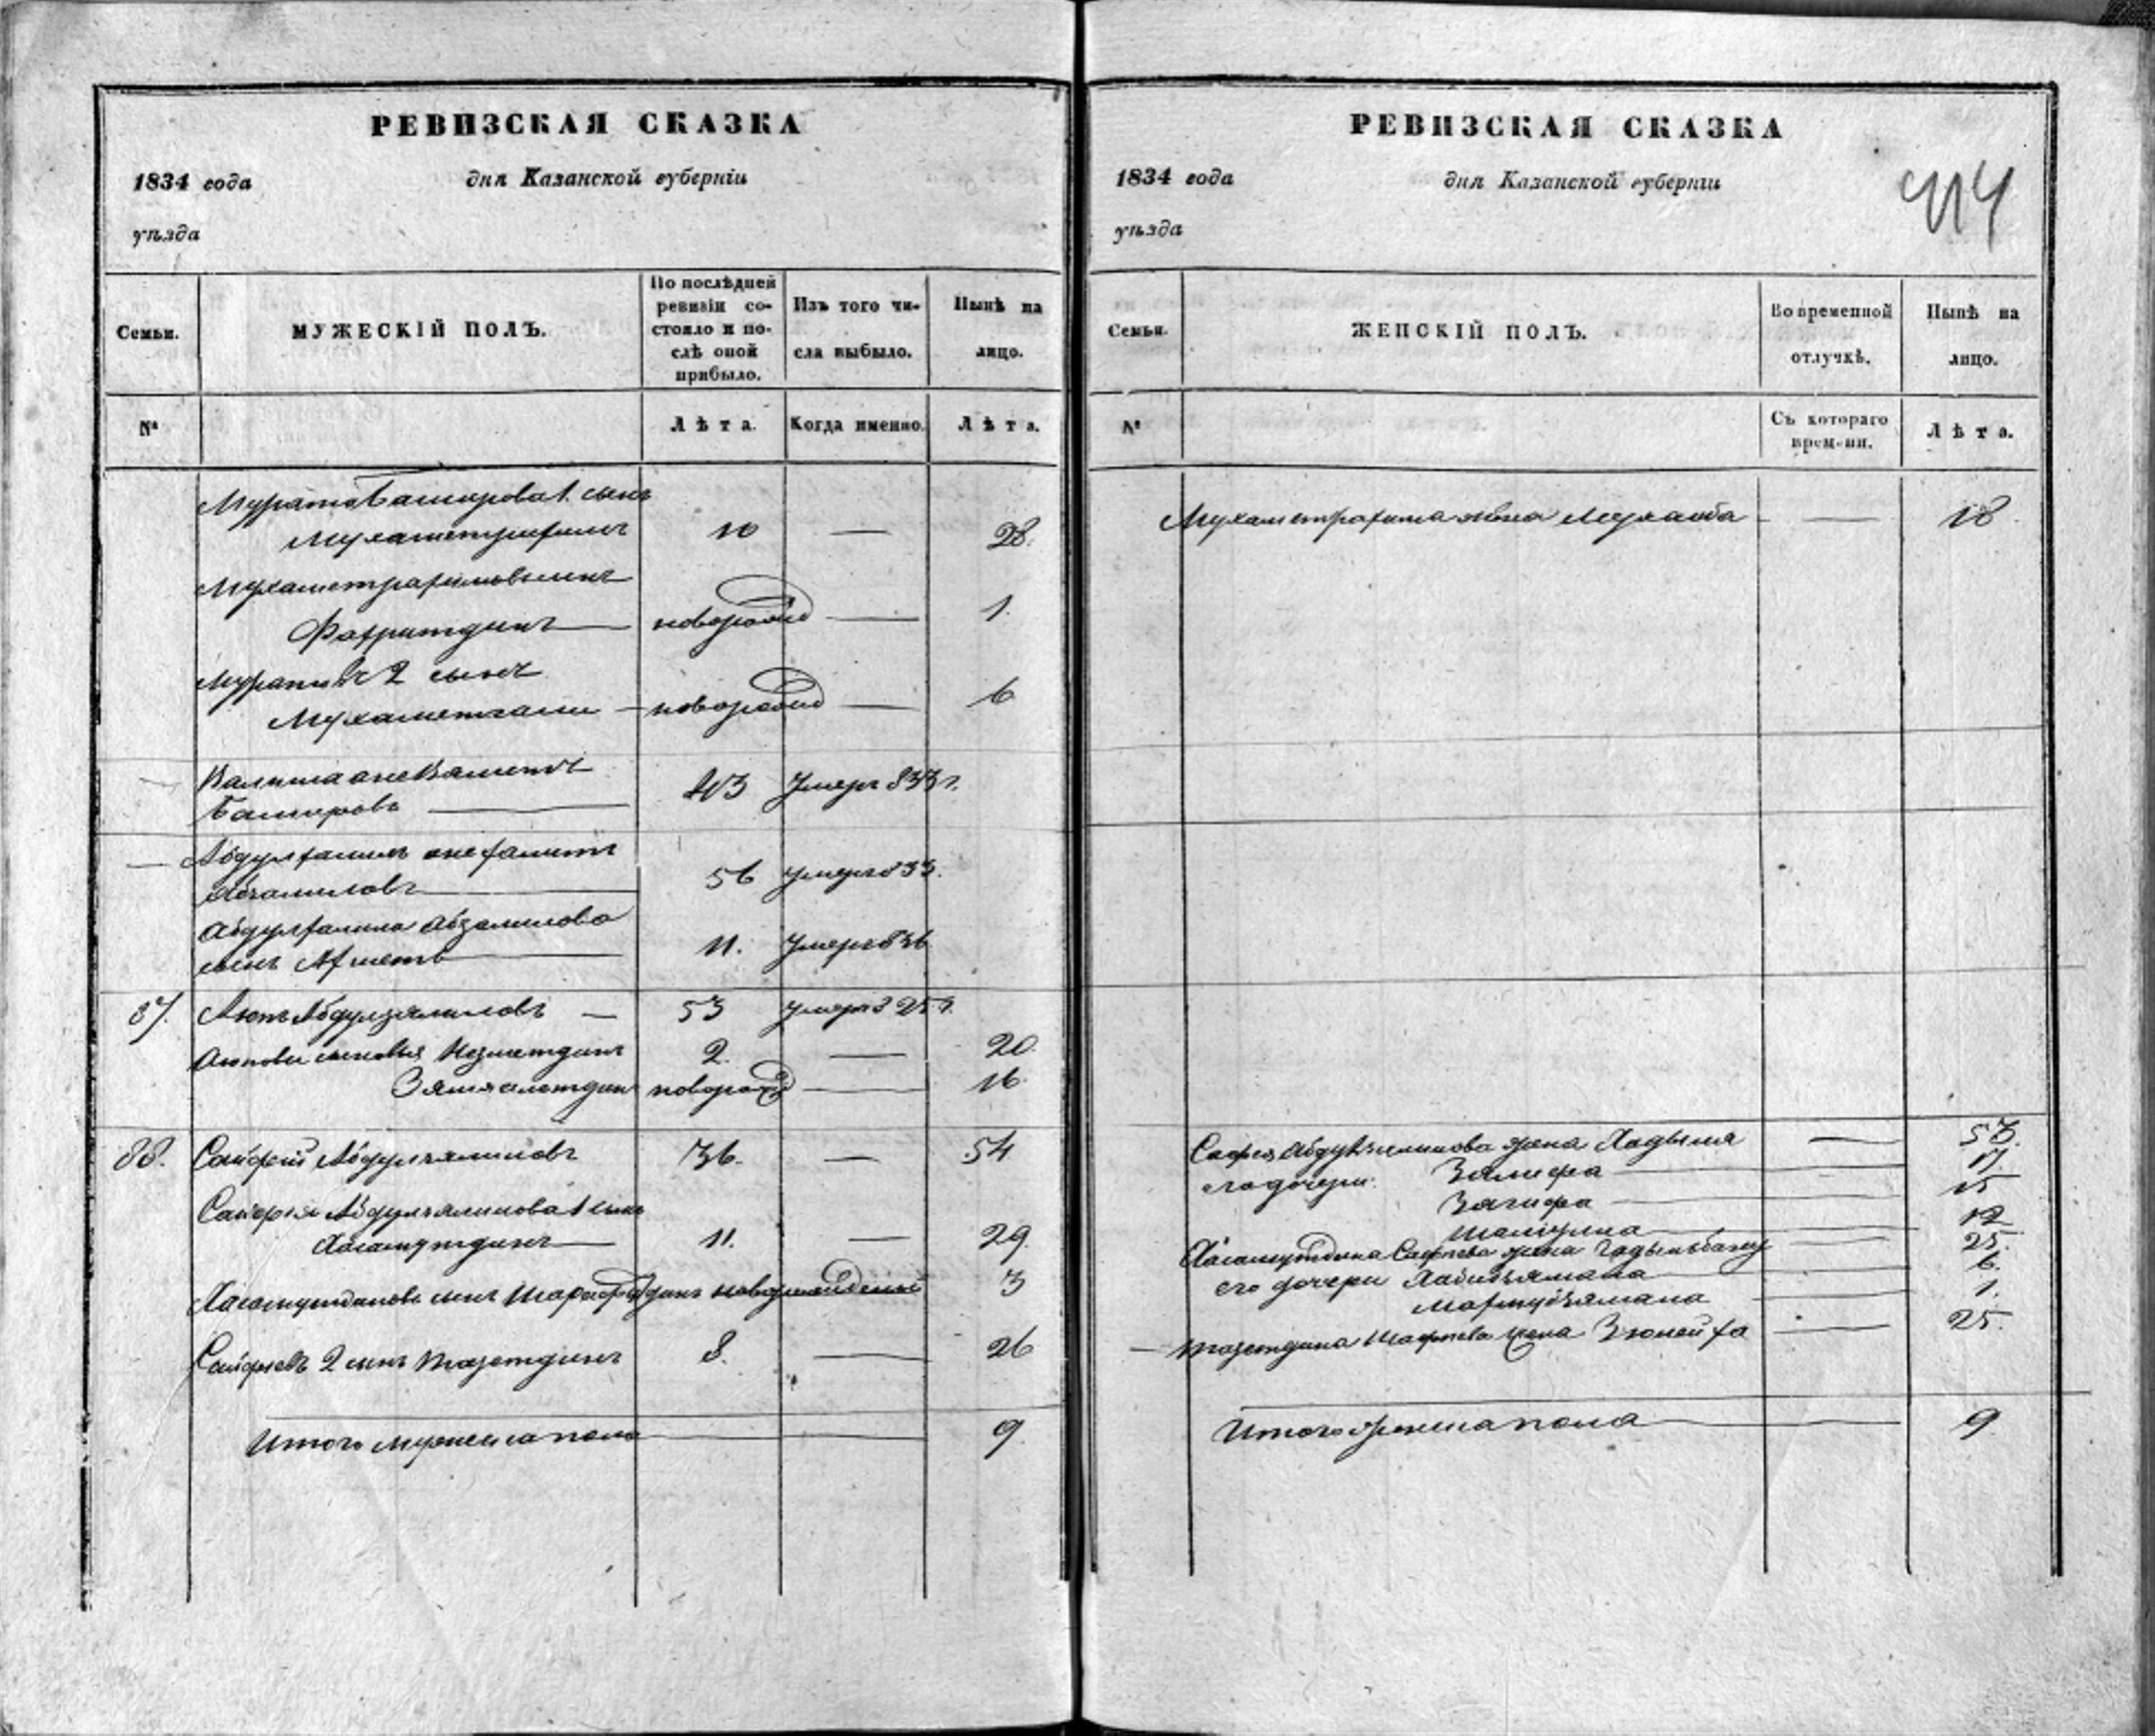 РЕВИЗСКАЯ СКАЗКА
1834 года дня Казанской губерніи
уѣзда
Семьи.
МУЖЕСКІЙ ПОЛЪ.
По послѣдней ревизіи состояло и послѣ оной прибыло.
Изъ того числа выбыло.
Нынѣ на лицо.
№
Лѣта.
Когда именно.
Лѣта.
Мурата Башерова 1 сынъ
Мухаметрафимъ 10 — 28.
Мухаметрафимовъ сынъ
Фахритдинъ — новорожд — 1.
Муратовъ 2 сынъ
Мухаметгали — новорожд — 6
Валиша оне Валитъ
Башеровъ — 43 Умеръ 833 г.
Абзамиловъ — 56 умеръ 833.
Абзамилова
сынъ Ахметъ — 11. Умеръ 836
87. Аюпъ Абдулзямиловъ — 53 умеръ 825 г.
Аюповы сыновья Незметдинъ 2. — 20.
новорожд — 16.
88. Сайфей Абдулзямиловъ 36. — 54
Сайфея Абдулзямилова 1 сынъ
Хасамутдинъ — 11. — 29.
Хасамутдиновъ сынъ Шарафутдинъ новорожденый 3
Сайфеевъ 2 сынъ Тазетдинъ 8. — 26
Итого мужеска пола — 9.
РЕВИЗСКАЯ СКАЗКА
1834 года дня Казанской губерніи
уѣзда
414
Семьи.
ЖЕНСКІЙ ПОЛЪ.
Во временной отлучкѣ.
Нынѣ на лицо.
№
Съ котораго времени.
Лѣта.
Мухаметрафима жена — 18
жена Хадыша — 53.
его дочери: Зямифа — 17.
Зягифа — 15
12
Хасамутдина Сафеева жена Гадыльбану — 25.
его дочери Хабибзямала — 6.
1.
Тазетдина жена Зюлейха — 25.
Итого женска пола — 9.